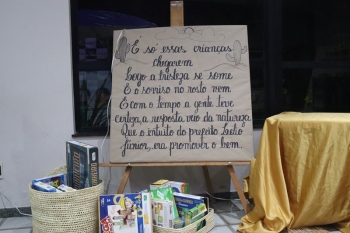 E só essas crianças
chegarem
Logo a tristeza se some
E o sorriso no rosto vem
E com o tempo a gente teve
certeza, a resposta veio da natureza
Que o intuito do prefeito Lelio
Júnior, era promover o bem.